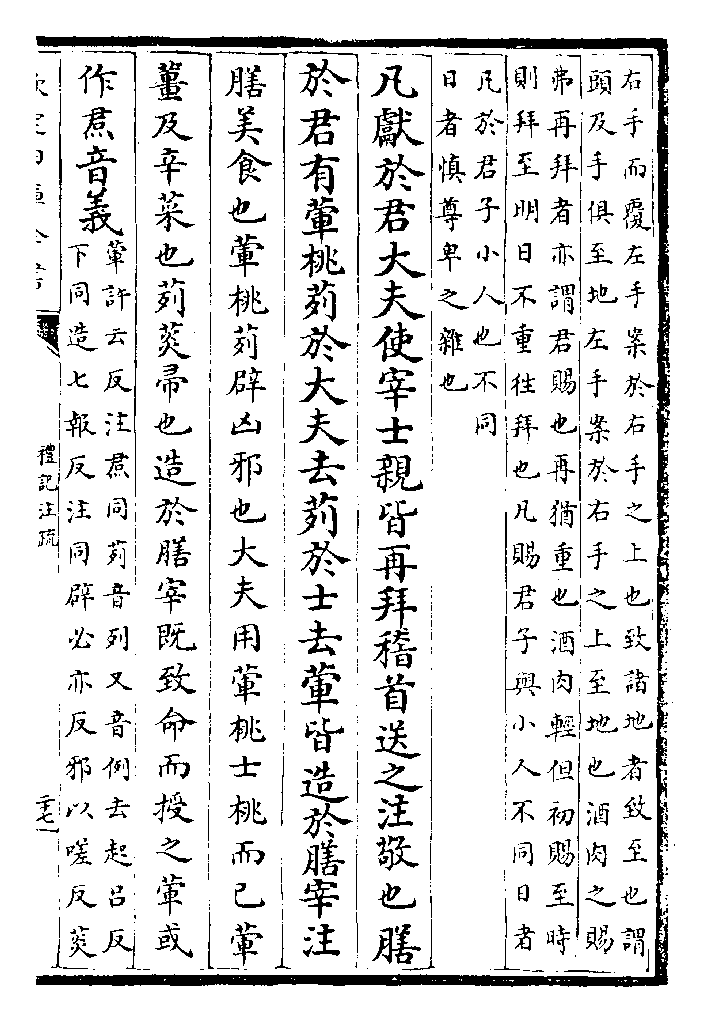 右手而覆左手案於右手之上也致諸地者致至也謂
頭及手俱至地左手案於右手之上至地也酒肉之賜
弗再拜者亦謂君賜也再猶重也酒肉輕但初賜至時
則拜至明日不重往拜也凡賜君子與小人不同日者
凡於君子小人也不同
日者慎尊卑之雜也
凡獻於君大夫使宰士親皆再拜稽首送之注敬也膳
於君有葷桃茢於大夫去茢於士去葷皆造於膳宰注
膳美食也葷桃茢辟凶邪也大夫用葷桃士桃而已葷
薑及辛菜也茢菼帚也造於膳宰既致命而授之葷或
作焄音義
葷許云反注焄同茢音列又音例去起呂反
下同造七報反注同辟必亦反邪以嗟反菼
禮記注疏